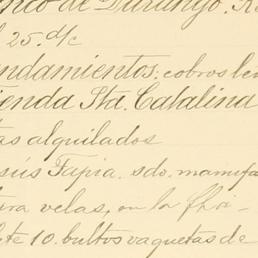 nco de Durango. R
l 25. d/c
ndamientos. cobros le
ienda Sta. Catalina
as alquilados
esús Tapia. sdo. manufa
ura velas, en la fha-
te 10. bultos vaquetas de